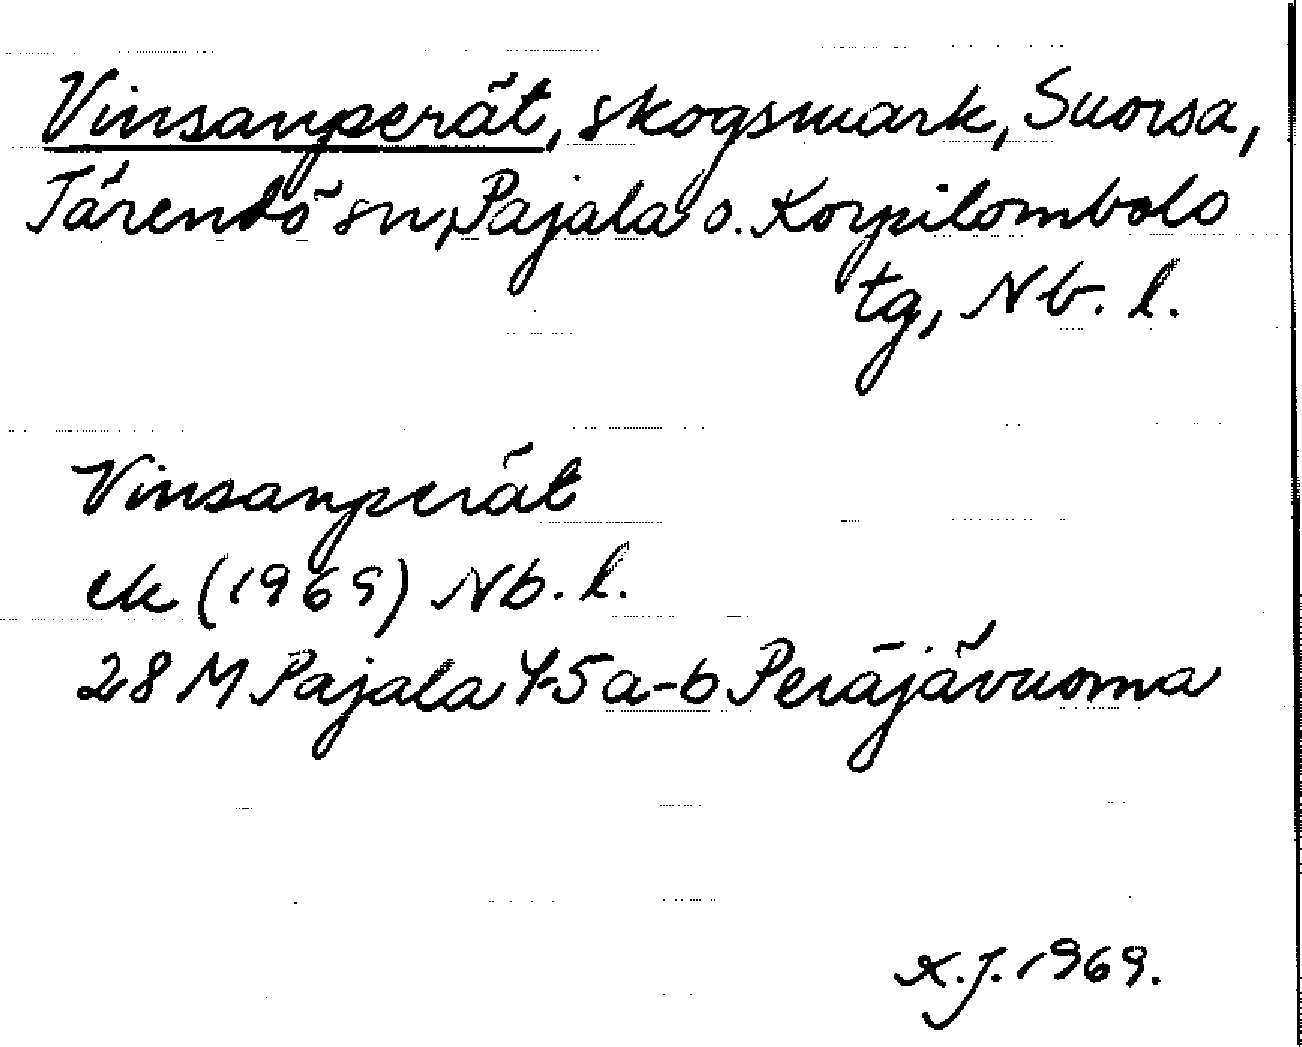 Vinsanperät, skogsmark, Suorsa,
Tärendö sn, Pajala o. Korpilombolo
tg, Nb. l.
Vinsanperät
ek (1969) Nb. l.
28 M Pajala 4-5 a-b Peräjävuoma
K.J. 1969.